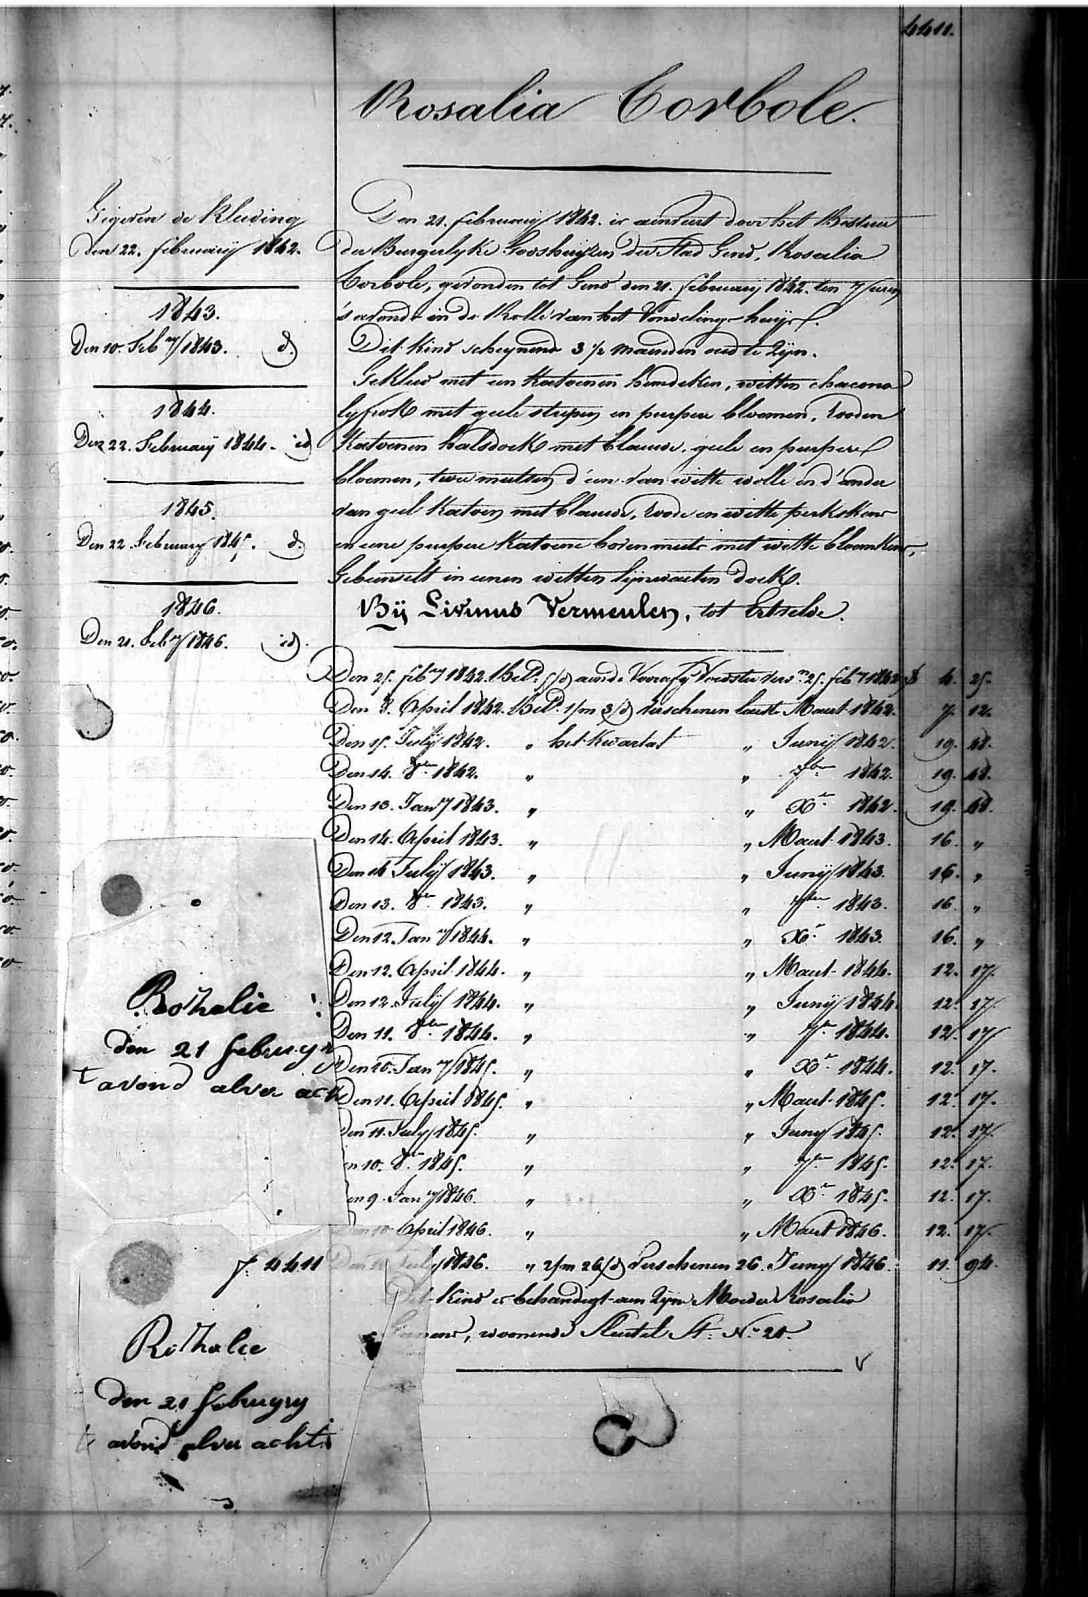 4411.
Rosalia Corbole.
Gegeven de Kleeding
den 22. february 1842.
1843.
Den 10. Feb.y 1843. id.
1844.
Den 22. February 1844. id.
1845.
Den 22. February 1845. id.
1846.
Den 21. Feb.y 1846. id.
Den 21. february 1842. is aenveert door het Bestuer
der Burgerlyke Godshuyzen der stad Gend, Rosalia
Corbole, gevonden tot Gend den 21. february 1842. ten 7 uren
s'avonds in de Rolle van het Vondelinge-huys.
Dit kind scheynend 3 ½ maenden oud te zyn.
Gekleed met een Katoenen hemdeken,
lyfrok met geele strepen en purpere bloemen, rooden
Katoenen halsdoek met blauwe, geele en purpere
bloemen, twee mutsen d'een van witte wolle en d'ander
van geel Katoen met blauwe, roode en witte perkskens
en eene purpere Katoene bovenmuts met witte bloemkens,
Gebunselt in eenen witten lynwaeten doek.
By Livinus Vermeulen, tot Ertvelde.
Den 25. feb.y 1842. Bet.d voedster vers.n 25. feb.y 1842 4. 25.
Den 8. April 1842. Bet.d verschenen laeste Maert 1842. 7. 12.
Den 15. July 1842. „ het kwartal „ Juny 1842. 19. 48.
Den 14. 8ber 1842. „ „ 7ber 1842. 19. 48.
Den 13. Jan.y 1843. „ „ Xr 1842. 19. 48.
Den 14. April 1843. „ „ Maert 1843. 16. „
Den 14 July 1843. „ „ Juny 1843. 16. „
Den 13. 8ber 1843. „ „ 7ber 1843. 16. „
Den 12. Jan.y 1844. „ „ Xr 1843. 16. „
Den 12. April 1844. „ „ Maert 1844. 12. 17.
Den 12. July 1844. „ „ Juny 1844. 12. 17.
Den 11. 8ber 1844. „ „ 7r 1844. 12. 17
Den 10. Jan.y 1845. „ „ Xr 1844. 12. 17.
Den 11. April 1845. „ „ Maert 1845. 12. 17.
Den 11. July 1845. „ „ Juny 1845. 12. 17.
en 10. 8r 1845. „ „ 7r 1845. 12. 17.
en 9. Jan.y 1846. „ „ Xr 1845. 12. 17.
Den 10 April 1846. „ „ Maert 1846. 12. 17.
Den July 1846. „ 2/m 26/d verschenen 26. Juny 1846. 11. 94.
Dit Kind is behandigt aen zyne Moeder Rosalia
woonende Sleutel St. No 21.
Rothalie
den 21 febrüary
t avond alver acht
f. 4411
Rothalie
den 21 februyry
t avond alver acht